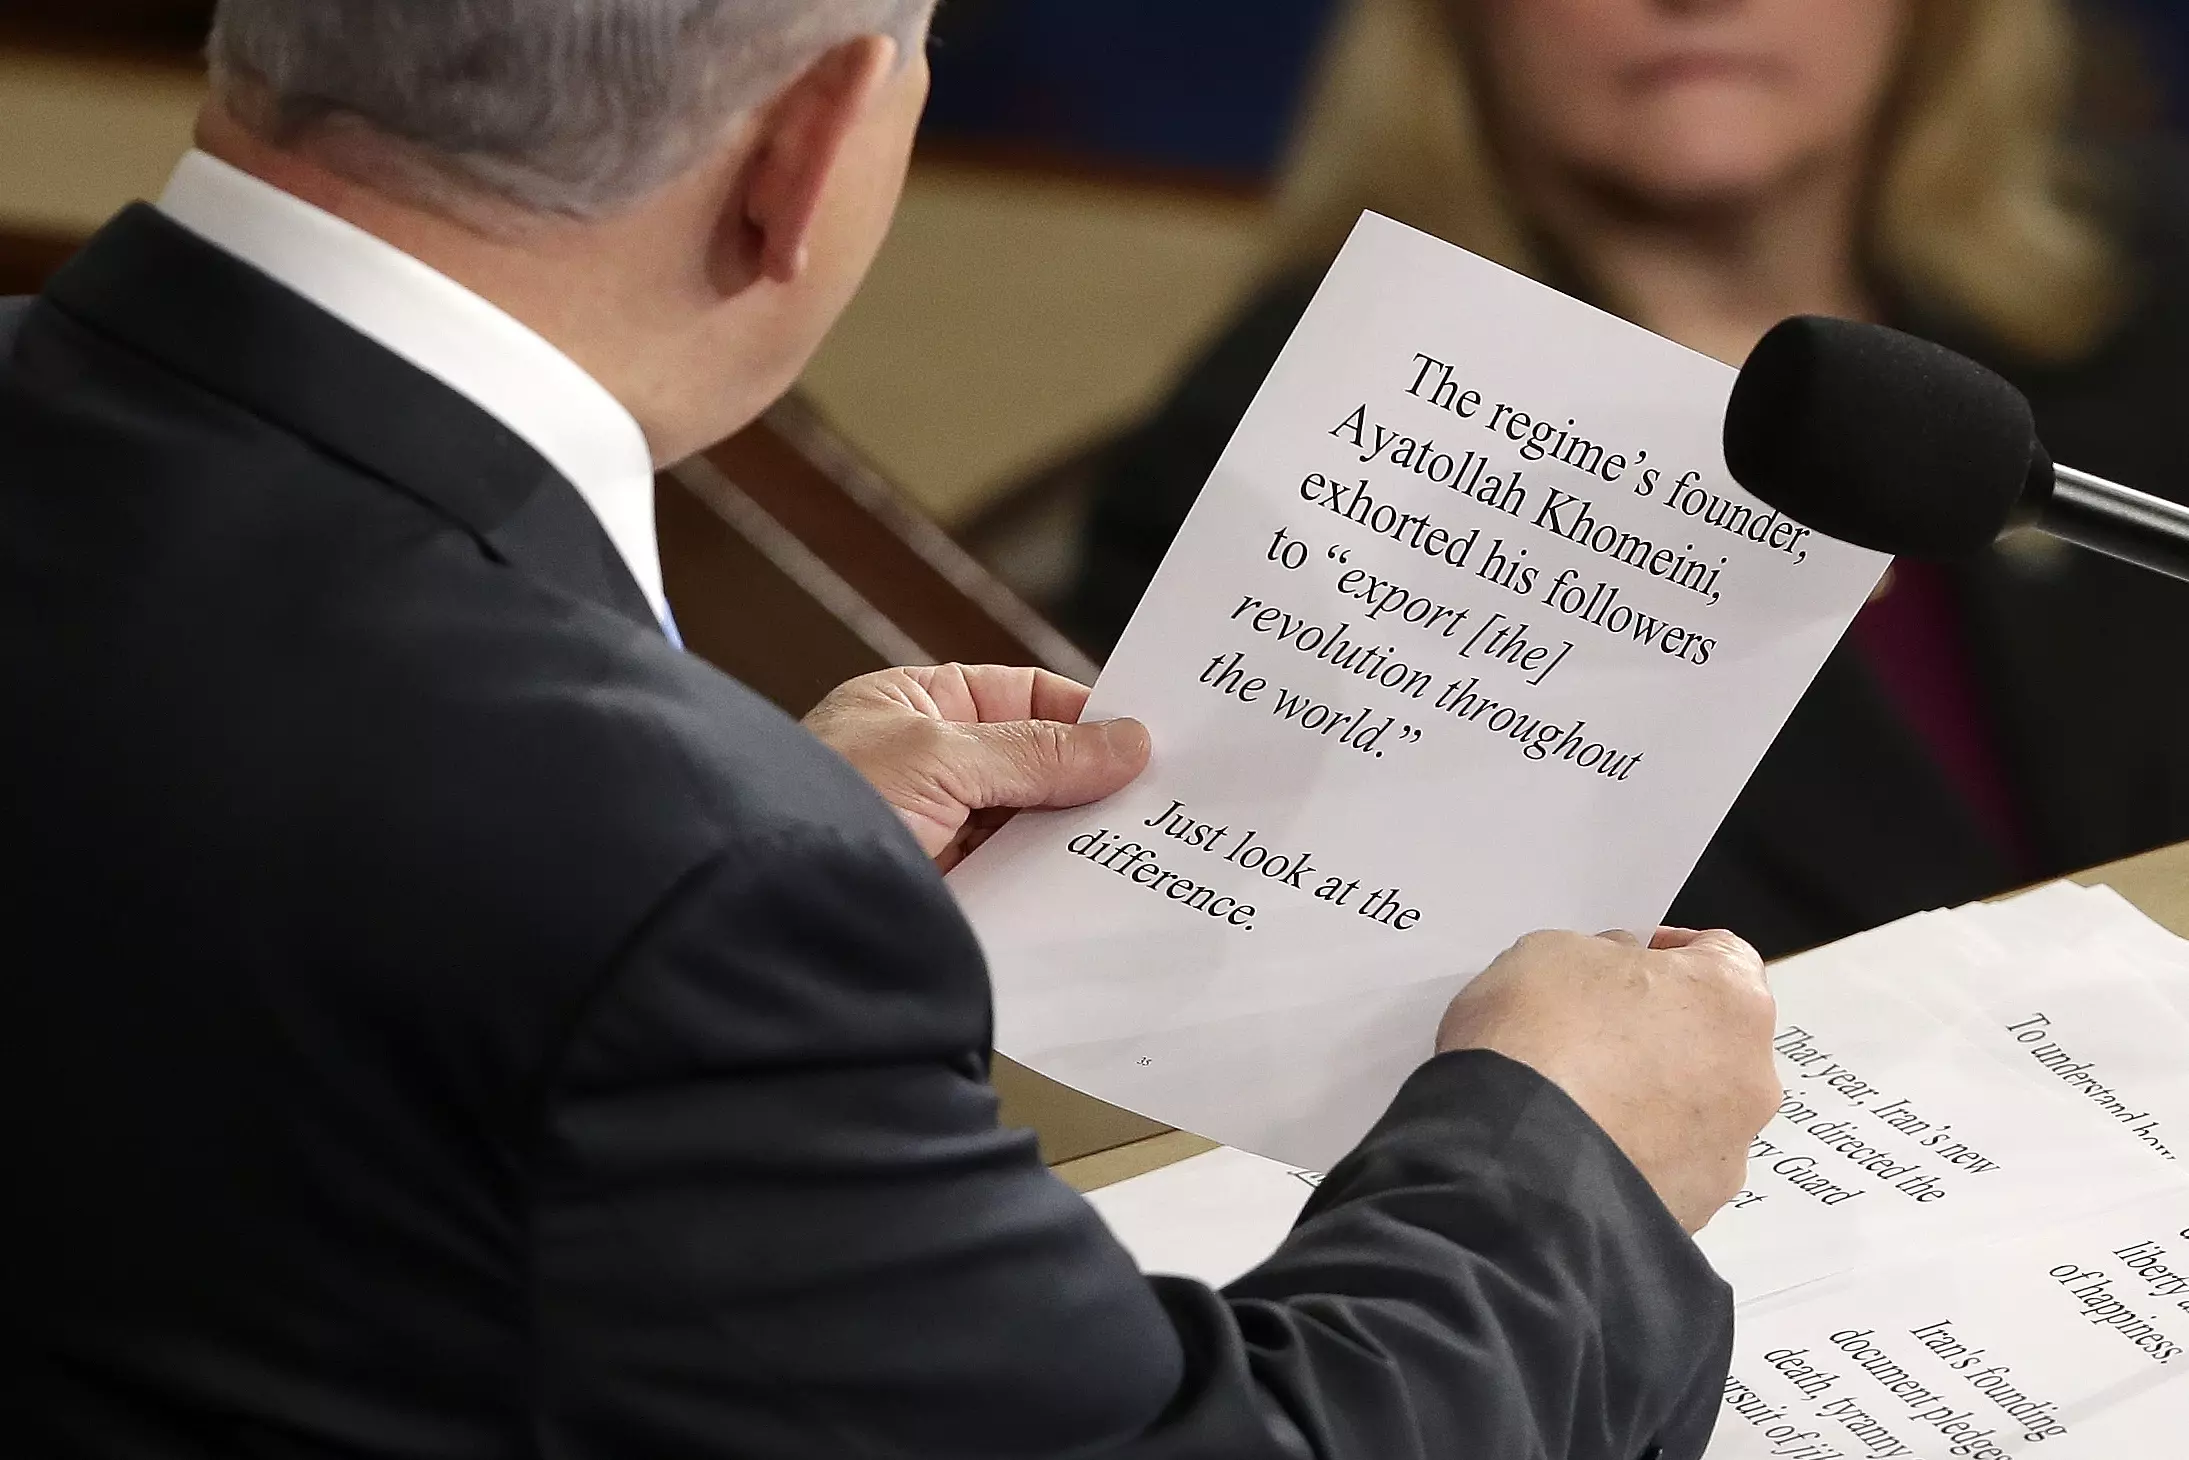 The regime’s founder,
Ayatollah Khomeini,
exhorted his followers
to “export [the]
revolution throughout
the world.”
Just look at the
difference.
35
That year, Iran’s new
directed the
Guard
To understand how
liberty
of happiness.
Iran's founding
document pledges
death, tyranny
of